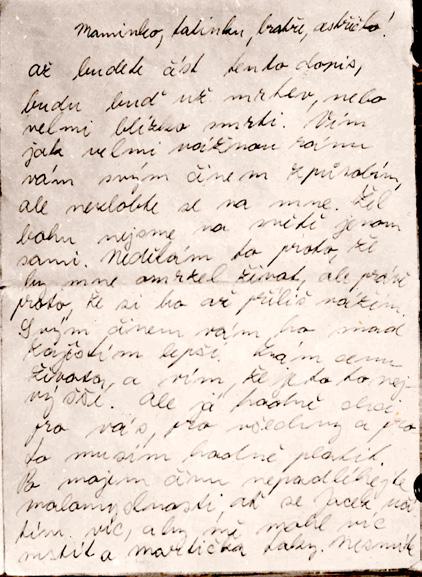 Maminko, tatínku, bratře, sestřičko!
až budete číst tento dopis,
budu buď už mrtev, nebo
velmi blízko smrti. Vím
jak velmi vážnou ránu
vám svým činem způsobím,
ale nezlobte se na mne. Žel
bohu nejsme na světě jenom
sami. Nedělám to proto, že
by mne omrzel život, ale právě
proto, že si ho až příliš vážím.
Svým činem vám ho snad
zajistím lepší. Znám cenu
života, a vím že je to to nej-
vyšší. Ale já hodně chci
pro vás, pro všechny a pro
to musím hodně platit.
Po mojem činu nepodléhejte
malomyslnosti, ať se Jacek učí
víc, a
a Martička taky. Nesmíte